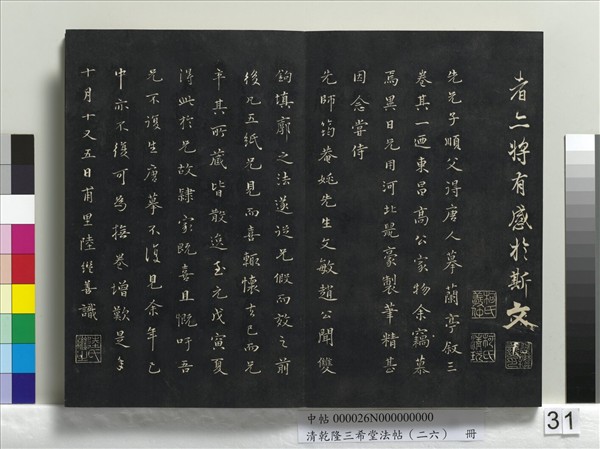 者亦將有感於斯文
先兄子順父得唐人摹蘭亭敘三
卷其一廼東昌高公家物余竊慕
焉異日兄用河北鼠豪製筆精甚
因念嘗侍
先師筠菴姚先生文敏趙公聞雙
鉤填廓之法遂從兄假而效之前
後凡五紙兄見而喜輒懷去已而兄
卒其所藏皆散逸至元戊寅夏
得此於兄故隸家既喜且慨吁吾
兄不復生唐摹不復見余年已
中亦不復可為撫卷增歎是年
十月十又五日甫里陸繼善識
柯氏敬仲
柯氏清玩
中帖 000026N000000000
清乾隆三希堂法帖（二六） 冊
31